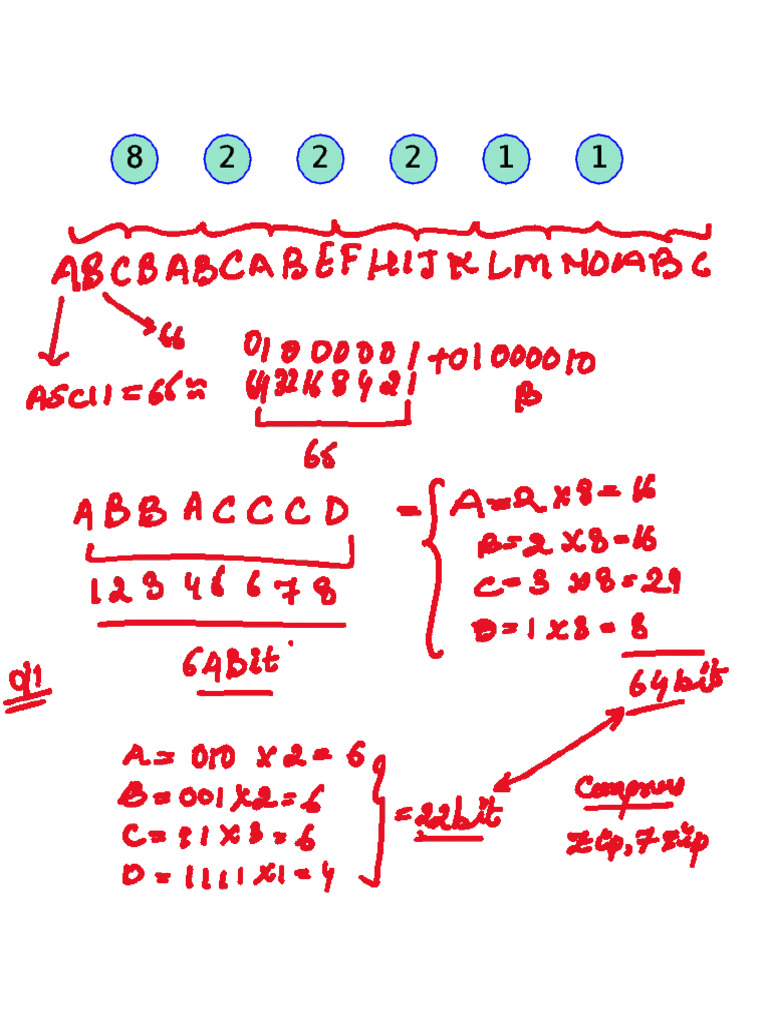 8 2 2 2 1 1
ABCBABCABEFHIJKLMNOABC
66
ASCII = 65 ≈ 01000001 + 01000010
64 32 16 8 4 2 1 B
65
ABBACCCD = A = 2 x 8 = 16
B = 2 x 8 = 16
1 2 3 4 5 6 7 8 C = 3 x 8 = 24
D = 1 x 8 = 8
64Bit
Q1 64bit
A = 010 x 2 = 6
B = 001 x 2 = 6
C = 11 x 3 = 6 = 22bit
D = 1111 x 1 = 4
zip, 7zip